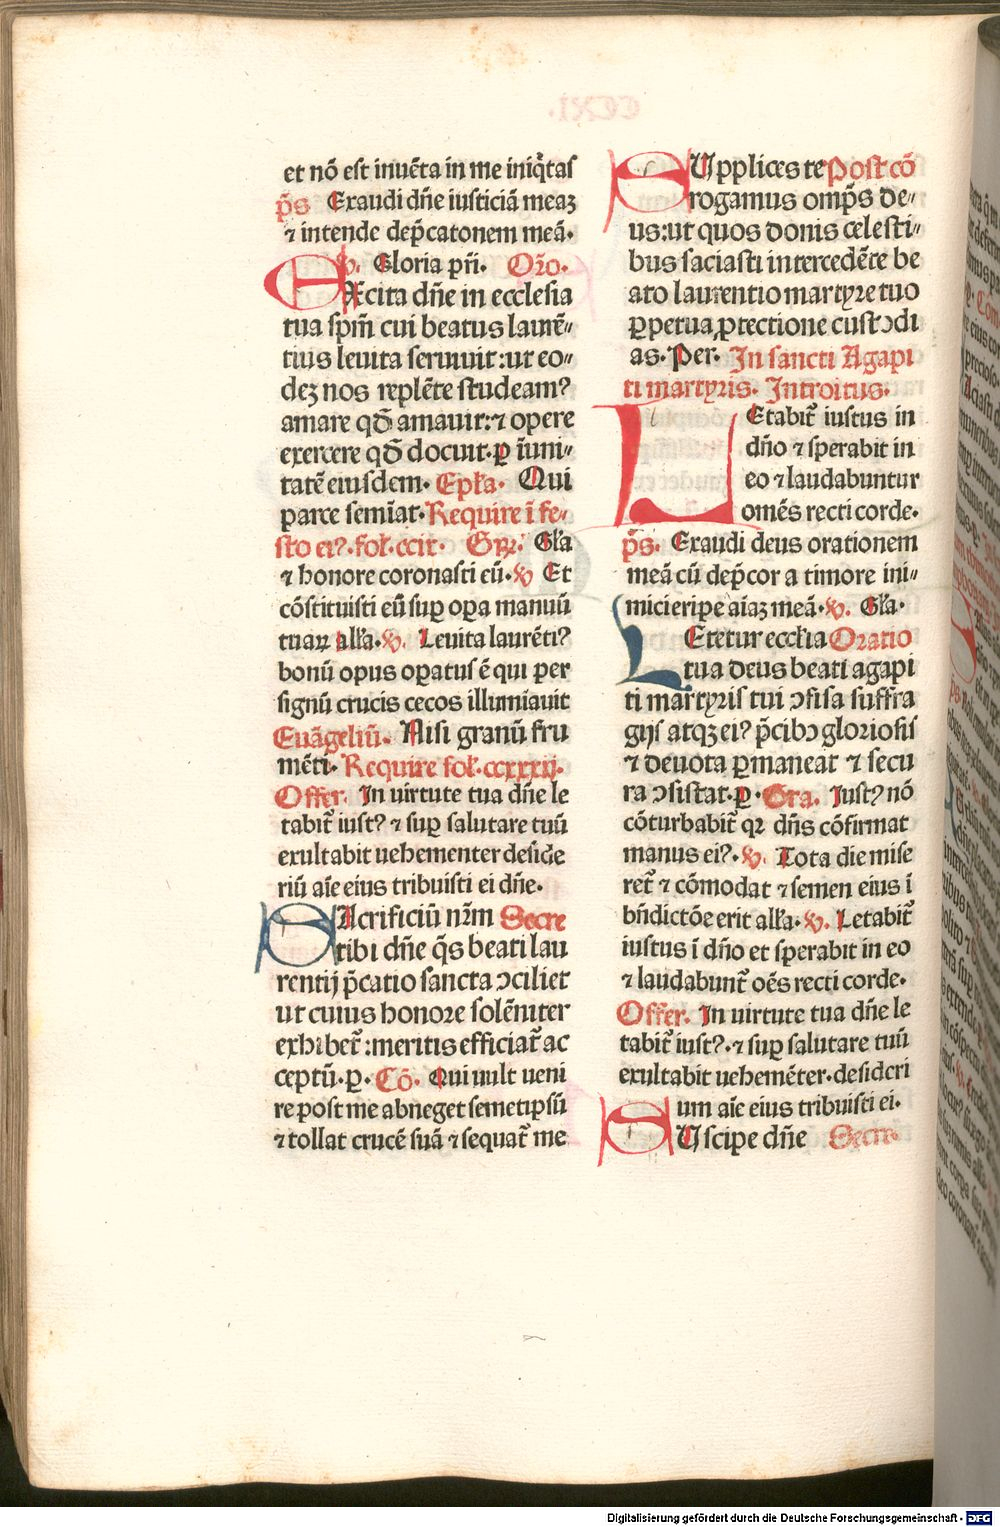 et nō est inuēta in me iniq̄tas
p̄s Exaudi dn̄e iusticiā meaꝫ
⁊ intende dep̄catonem meā.
℣. Gloria pr̄i. Or̄o.
EXcita dn̄e in ecclesia
tua spm̄ cui beatus laurē⸗
tius leuita seruiuit:ut eo⸗
deꝫ nos replēte studeam?
amare qđ amauit:⁊ opere
exercere qđ docuit.ꝑ ūni⸗
tatē eiusdem. Epl̄a. Qui
parce semīat. Require ī fe⸗
sto ei?.fol̄.ccii. Gr̄. Gl̄a
⁊ honore coronasti eū.℣ Et
cōstituisti eū sup̄ op̄a manuū
tuaꝝ all̄a.℣. Leuita laurēti?
bonū opus op̄atus ē qui per
signū crucis cecos illumiauit
Euāgeliū. Nisi granū fru
mēti. Require fol̄.ccxxxxj.
Offer. In uirtute tua dn̄e le
tabit̄ iust? ⁊ sup̄ salutare tuū
exultabit uehementer deside
riū aīe eius tribuisti ei dn̄e.
SAcrificiū nr̄m Secre
tibi dn̄e q̄s beati lau
rentij p̄catio sancta ↄciliet
ut cuius honore solēniter
exhibet̄:meritis efficiat̄ ac
ceptū.ꝑ. Cō. Qui uult ueni
re post me abneget semetipsū
⁊ tollat crucē suā ⁊ sequat̄ me
SUpplices te Post cō
rogamus omp̄s de⸗
us:ut quos donis celesti⸗
bus saciasti intercedēte be
ato laurentio martyre tuo
ꝑpetua ꝓtectione custodi
as. Per. In sancti Agapi
ti martyris. Introitus.
LEtabit̄ iustus in
dn̄o ⁊ sperabit in
eo ⁊ laudabuntur
omēs recti corde.
p̄s. Exaudi deus orationem
meā cū dep̄cor a timore ini⸗
mici eripe aīaꝫ meā.℣. Gl̄a.
LEtetur eccl̄ia Oratio
tua deus beati agapi
ti martyris tui ↄfisa suffra
gijs atqꝫ ei? p̄cibↄ gloriosis
⁊ deuota ꝑmaneat ⁊ secu
ra ↄsistat.ꝑ. Gra. Iust? nō
cōturbabit̄ qꝛ dn̄s cōfirmat
manus ei?.℣. Tota die mise
ret̄ ⁊ cōmodat ⁊ semen eius ī
bn̄dictōe erit all̄a.℣. Letabit̄
iustus ī dn̄o et sperabit in eo
⁊ laudabunt̄ oēs recti corde.
Offer. In uirtute tua dn̄e le
tabit̄ iust?.⁊ sup̄ salutare tuū
exultabit uehemēter.desideri
um aīe eius tribuisti ei.
SUscipe dn̄e Secre.
Digitalisierung gefördert durch die Deutsche Forschungsgemeinschaft - DFG